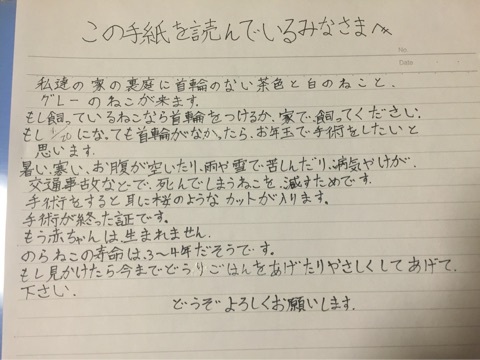 この手紙を読んでいるみなさまへ
No.
Date
私達の家の裏庭に首輪のない茶色と白のねこと、
グレーのねこが来ます。
もし飼っているねこなら首輪をつけるか、家で飼ってください。
もし1/20になっても首輪がなかったら、お年玉で手術をしたいと
思います。
暑い、寒い、お腹が空いたり、雨や雪で苦しんだり、病気やけが、
交通事故などで、死んでしまうねこを、減すためです。
手術をすると耳に桜のようなカットが入ります。
手術が終った証です。
もう赤ちゃんは生まれません。
のらねこの寿命は、3～4年だそうです。
もし見かけたら今までどうりごはんをあげたりやさしくしてあげて
下さい。
どうぞよろしくお願いします。